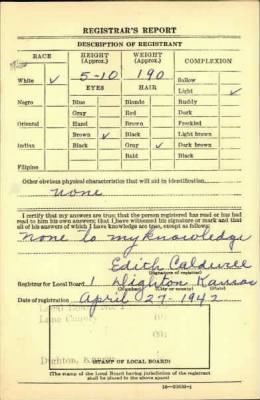 REGISTRAR'S REPORT
DESCRIPTION OF REGISTRANT
RACE HEIGHT (Approx.) WEIGHT (Approx.) COMPLEXION
White ✓ 5-10 190 Sallow
EYES HAIR Light ✓
Negro Blue Blonde Ruddy
Gray Red Dark
Oriental Hazel Brown Freckled
Brown ✓ Black Light brown
Indian Black Gray ✓ Dark brown
Bald Black
Filipino
Other obvious physical characteristics that will aid in identification
None
I certify that my answers are true; that the person registered has read or has had
read to him his own answers; that I have witnessed his signature or mark and that
all of his answers of which I have knowledge are true, except as follows:
None to my knowledge
Edith Caldwell
(Signature of registrar)
Registrar for Local Board 1 Dighton Kansas
(Number) (City or county) (State)
Date of registration April 27-1942
Local Board No. 1
Lane County
Dighton, Kansas
(STAMP OF LOCAL BOARD)
(The stamp of the Local Board having jurisdiction of the registrant
shall be placed in the above space)